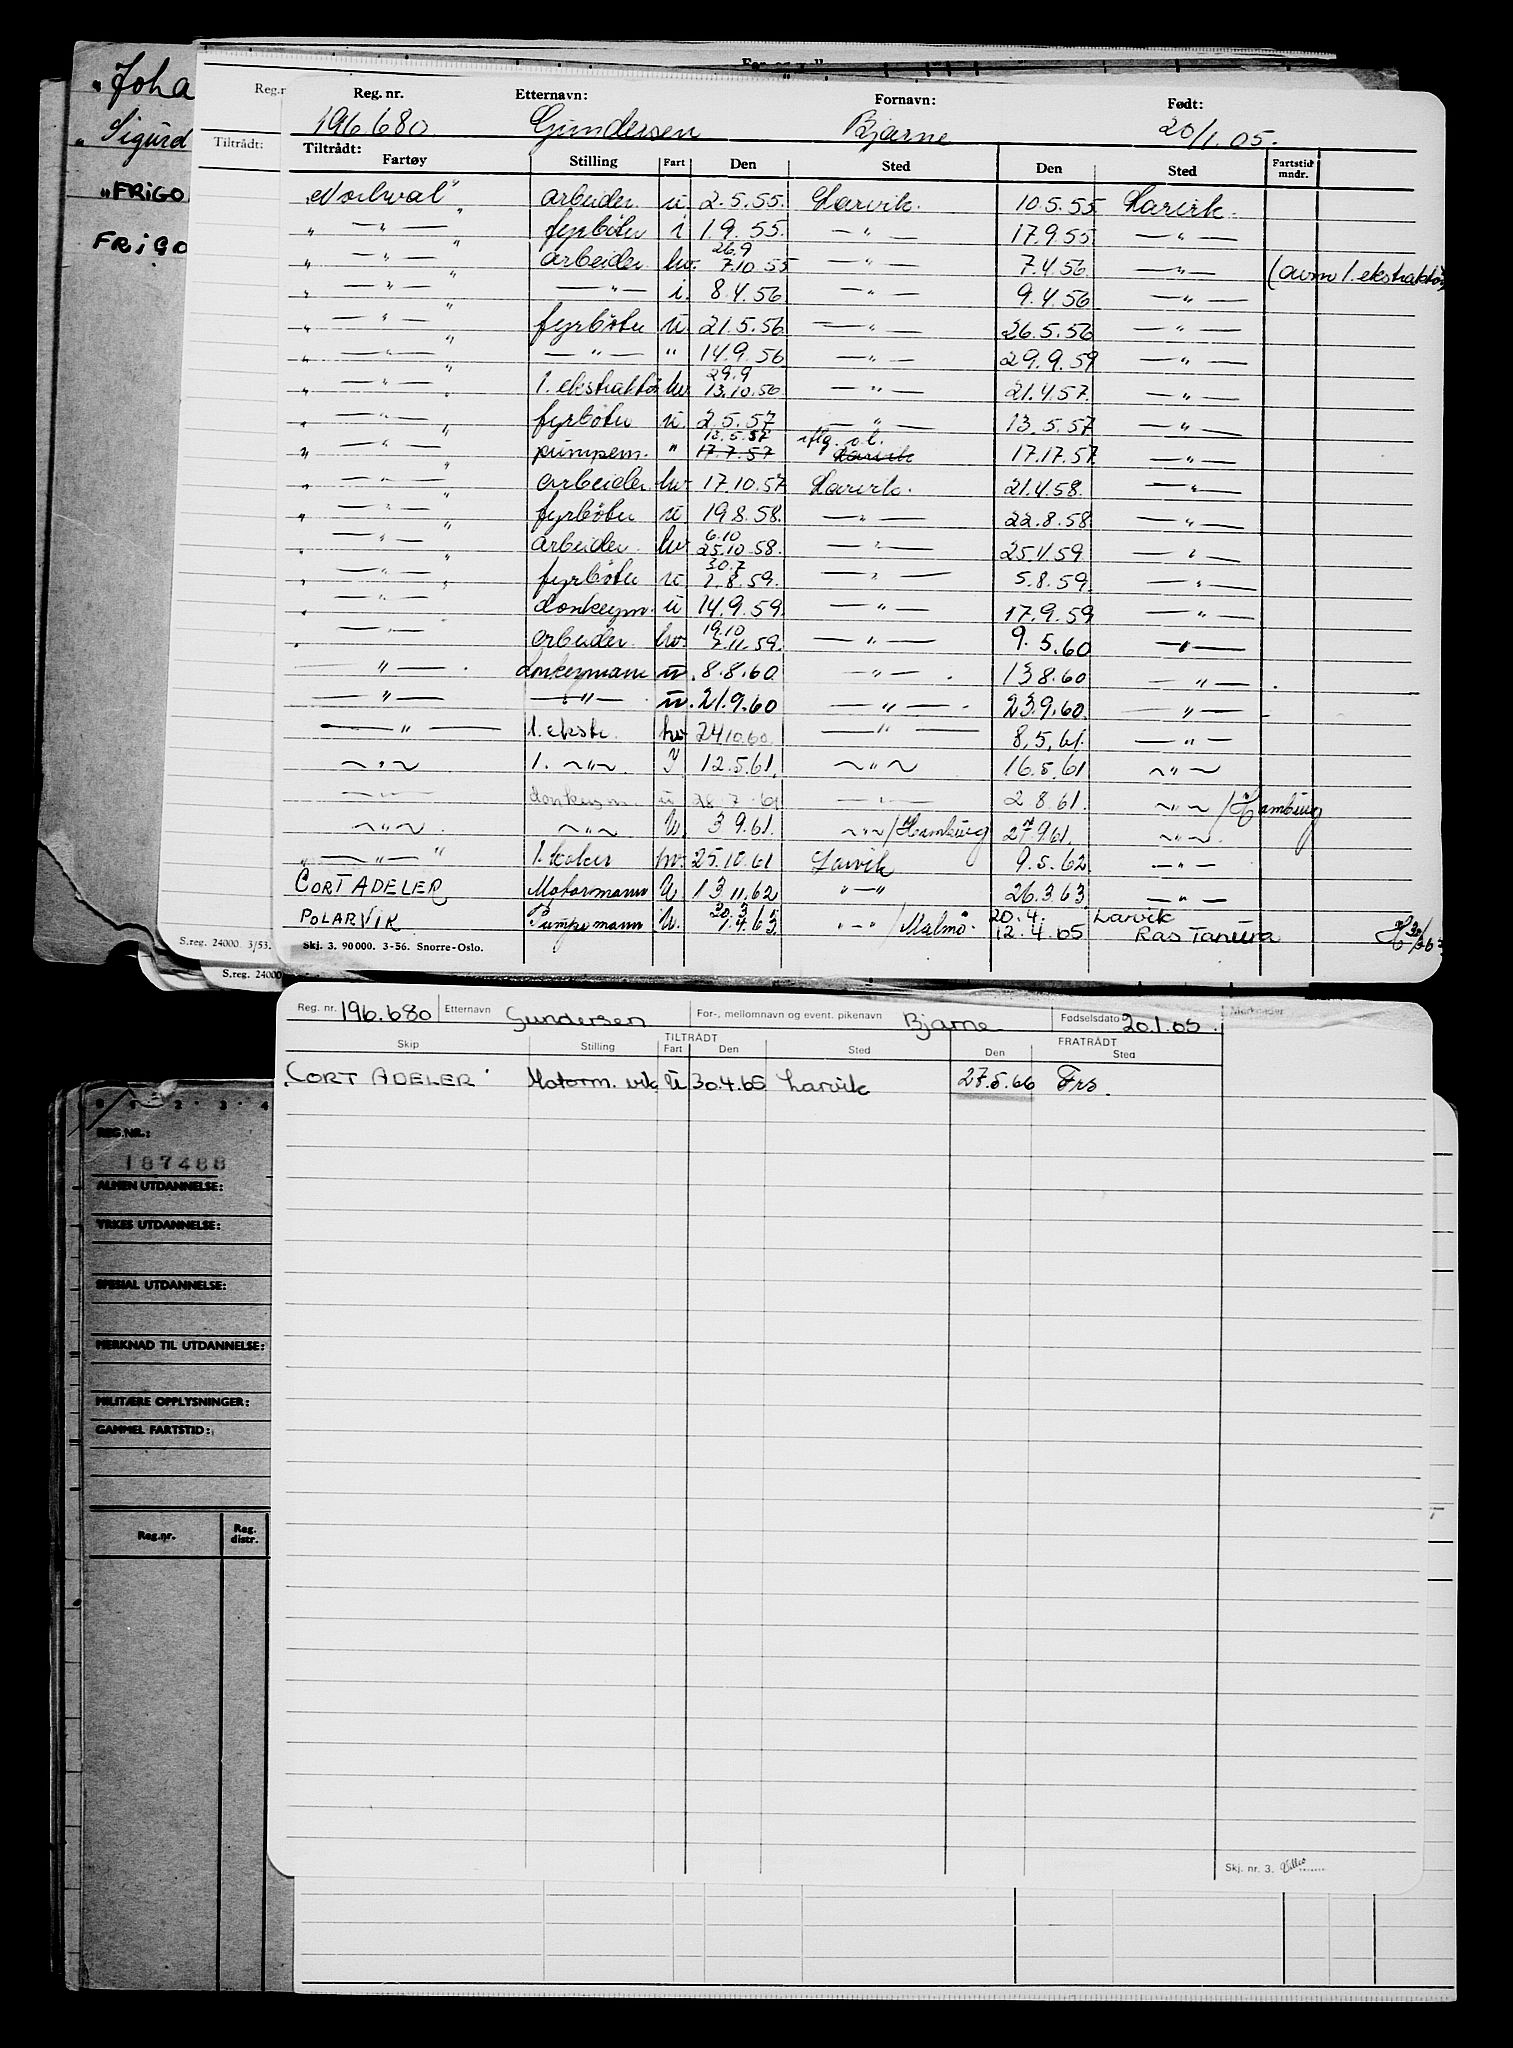 "Joha
"Sigurd
"FRIGO
FRIGO
Reg.n
Tiltrådt:
Reg. nr. Etternavn: Fornavn: Født:
196.680 Gundersen Bjarne 20/1.05.
Tiltrådt:
Fartøy Stilling Fart Den Sted Den Sted Fartstid mndr.
"Norhval" arbeider u. 2.5.55. Larvik. 10.5.55 Larvik.
" — " — " fyrbøter i 1.9.55. — " — 17.9.55 — " —
" — " — " arbeider. hv. 26.9 7.10.55 — " — 7.4.56 — " — (avm 1. ekstraktør)
" — " — " — " — i. 8.4.56 — " — 9.4.56 — " —
" — " — " fyrbøter u. 21.5.56 — " — 26.5.56 — " —
" — " — " — " — " 14.9.56 — " — 29.9.59 — " —
" — " — " 1. ekstraktør hv. 29.9 13.10.56 — " — 21.4.57. — " —
" — " — " fyrbøter u. 2.5.57 — " — 13.5.57 — " —
" — " — " pumpem. " 13.5.57 17.7.57 iflg. o.l. Larvik 17.17.57 — " —
" — " — " arbeider hv. 17.10.57 Larvik. 21.4.58. — " —
" — " — " fyrbøter u 19.8.58. — " — 22.8.58 — " —
" — " — " arbeider. hv 6.10 25.10.58. — " — 25.4.59. — " —
" — " — " fyrbøter u 30.7 1.8.59. — " — 5.8.59. — " —
" — " — " donkeym. u 14.9.59. — " — 17.9.59 — " —
" — " — arbeider. hv. 19.10 7.11.59. — " — 9.5.60 — " —
— " — . donkeymann u. 8.8.60 — " — . 13.8.60 — " — .
— " — — " — u. 21.9.60 — " — . 23.9.60. — " —
— " — 1. ekstr. hv 24.10.60. — " — 8.5.61. — " —
— " — 1. — " —. I 12.5.61. — " — 16.5.61 — " —
— " — donkeym. u 28.7.61 — " — 2.8.61. — " — / Hamburg
— " — . — " — U. 3.9.61. — " — / Hamburg 27.9.61. — " — .
" — " — " 1. koker hv. 25.10.61 Larvik 9.5.62 — " —
CORT ADELER Motormann U 13.11.62 " — " 26.3.63 — " —
POLARVIK Pumpemann U. 30.3 1.4.63. " — " / Malmö. 20.4. 12.4.65 Larvik Ras Tanura
S.reg. 24000. 3/53. Skj. 3. 90000. 3-56. Snorre-Oslo.
S.reg. 24000
Reg. nr. 196.680 Etternavn Gundersen For-, mellomnavn og event. pikenavn Bjarne Fødselsdato 20.1.05. Merknader
TILTRÅDT FRATRÅDT
Skip Stilling Fart Den Sted Den Sted
"CORT ADELER" Motorm. vik. U 30.4.65 Larvik 27.5.66 Frs.
REG.NR.:
187488
ALMEN UTDANNELSE:
YRKES UTDANNELSE:
SPESIAL UTDANNELSE:
MERKNAD TIL UTDANNELSE:
MILITÆRE OPPLYSNINGER:
GAMMEL FARTSTID:
Reg.nr. Reg. distr.
Skj. nr. 3.